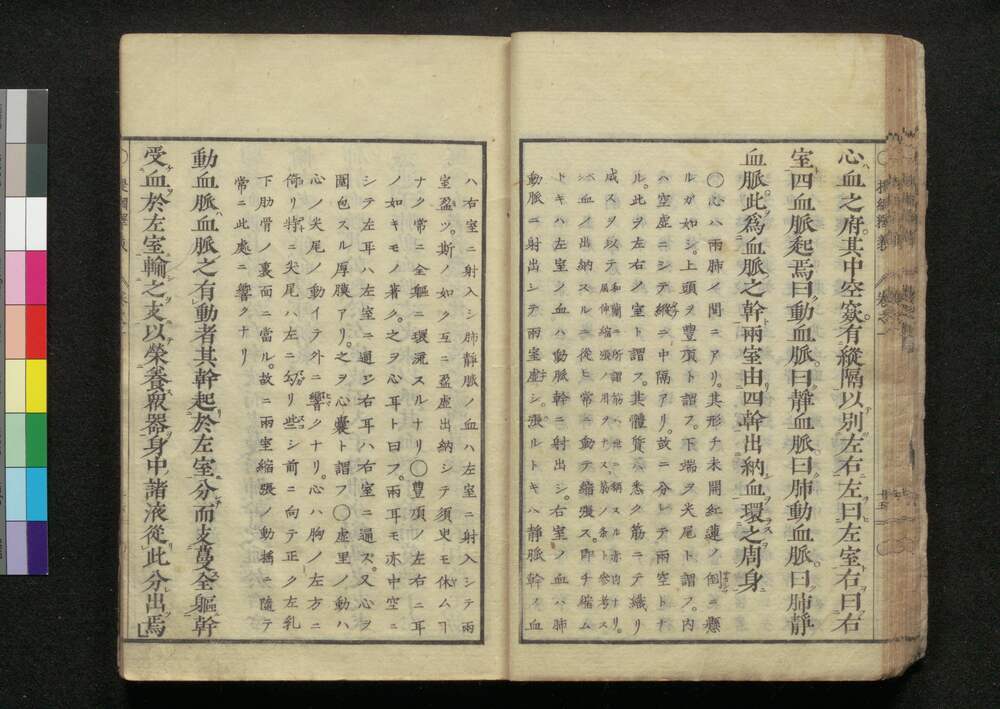 心血之府其中空竅有縱隔以別左右左曰左室右曰右
室四血脈起焉曰動血脈曰靜血脈曰肺動血脈曰肺靜
血脈此爲血脈之幹兩室由四幹出納血環之周身
〇心ハ兩肺ノ間ニアリ。其形チ未開紅蓮ノ倒ニ懸
ルガ如シ。上頭ヲ豐頂ト謂フ。下端ヲ尖尾ト謂フ。内
ハ空虚ニシテ縱ニ中隔アリ。故ニ分レテ兩空トナ
ル。此ヲ左右ノ室ト謂フ。其體質ハ悉ク筋ニテ織リ
成ス。ヲ以テ
血ノ出納スルニ從ヒ常ニ動テ縮張ス。即チ縮ム
トキハ左室ノ血ハ動脈幹ニ射出シ。右室ノ血ハ肺
動脈ニ射出シテ兩室虚シ。張ルトキハ靜脈幹ノ血
ハ右室ニ射入シ肺靜脈ノ血ハ左室ニ射入シテ兩
室盈ツ。斯ノ如ク互ニ盈虚出納シテ須臾モ休ムヿ
ナク常ニ全軀ニ環流スルナリ〇豐頂ノ左右ニ耳
ノ如キモノ着ク。之ヲ心耳ト曰フ。兩耳モ亦中空ニ
シテ左耳ハ左室ニ通ジ右耳ハ右室ニ通ス。又心ヲ
圍包スル厚膜アリ。之ヲ心囊ト謂フ〇虚里ノ動ハ
心ノ尖尾ノ動イテ外ニ響クナリ。心ハ胸ノ左方ニ
倚リ特ニ尖尾ハ左ニ幻リ些シ前ニ向テ正ク左乳
下肋骨ノ裏面ニ當ル。故ニ兩室縮張ノ動搖ニ隨テ
常ニ此處ニ響クナリ
動血脈血脈之有動者其幹起於左室分而支蔓全軀幹
受血於左室輸之支以榮養眾器身中諸液從此分出焉